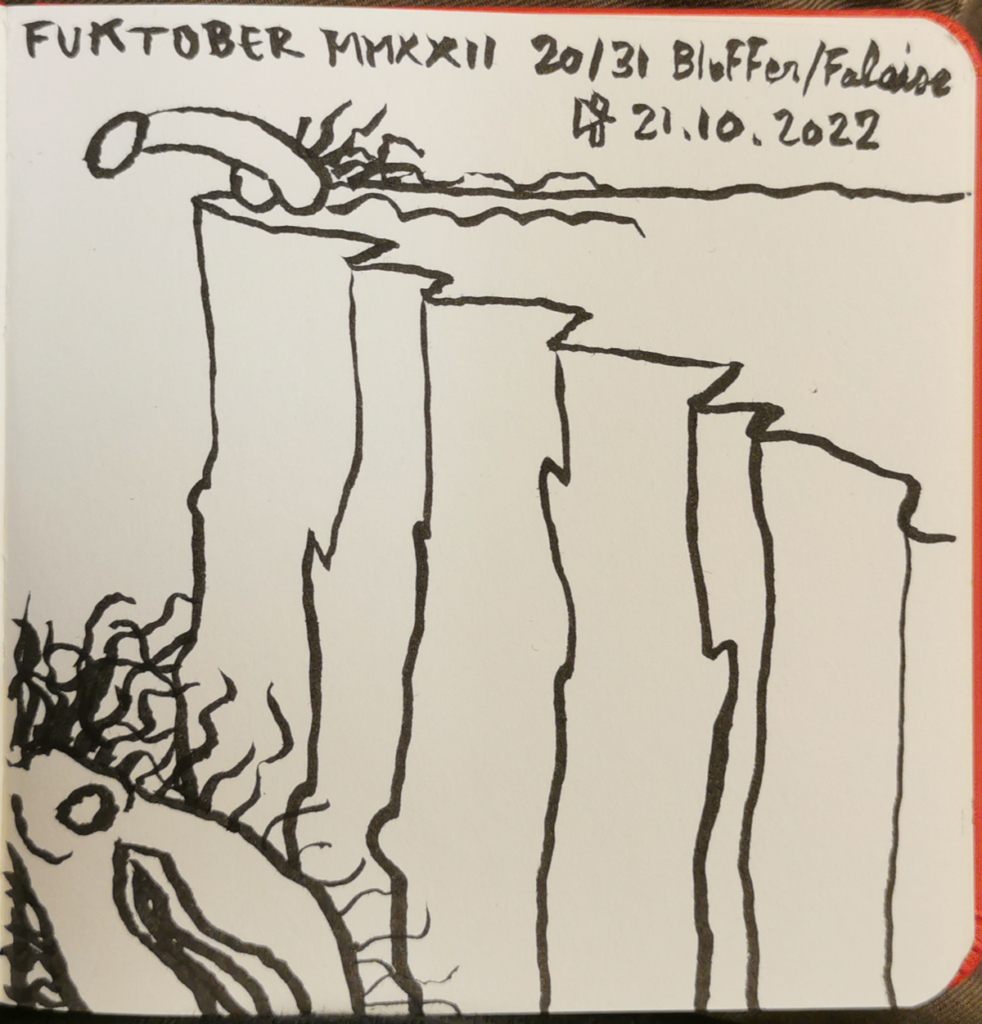 FUKTOBER MMXXII 20/31 Bluffer/Falaise
21.10.2022